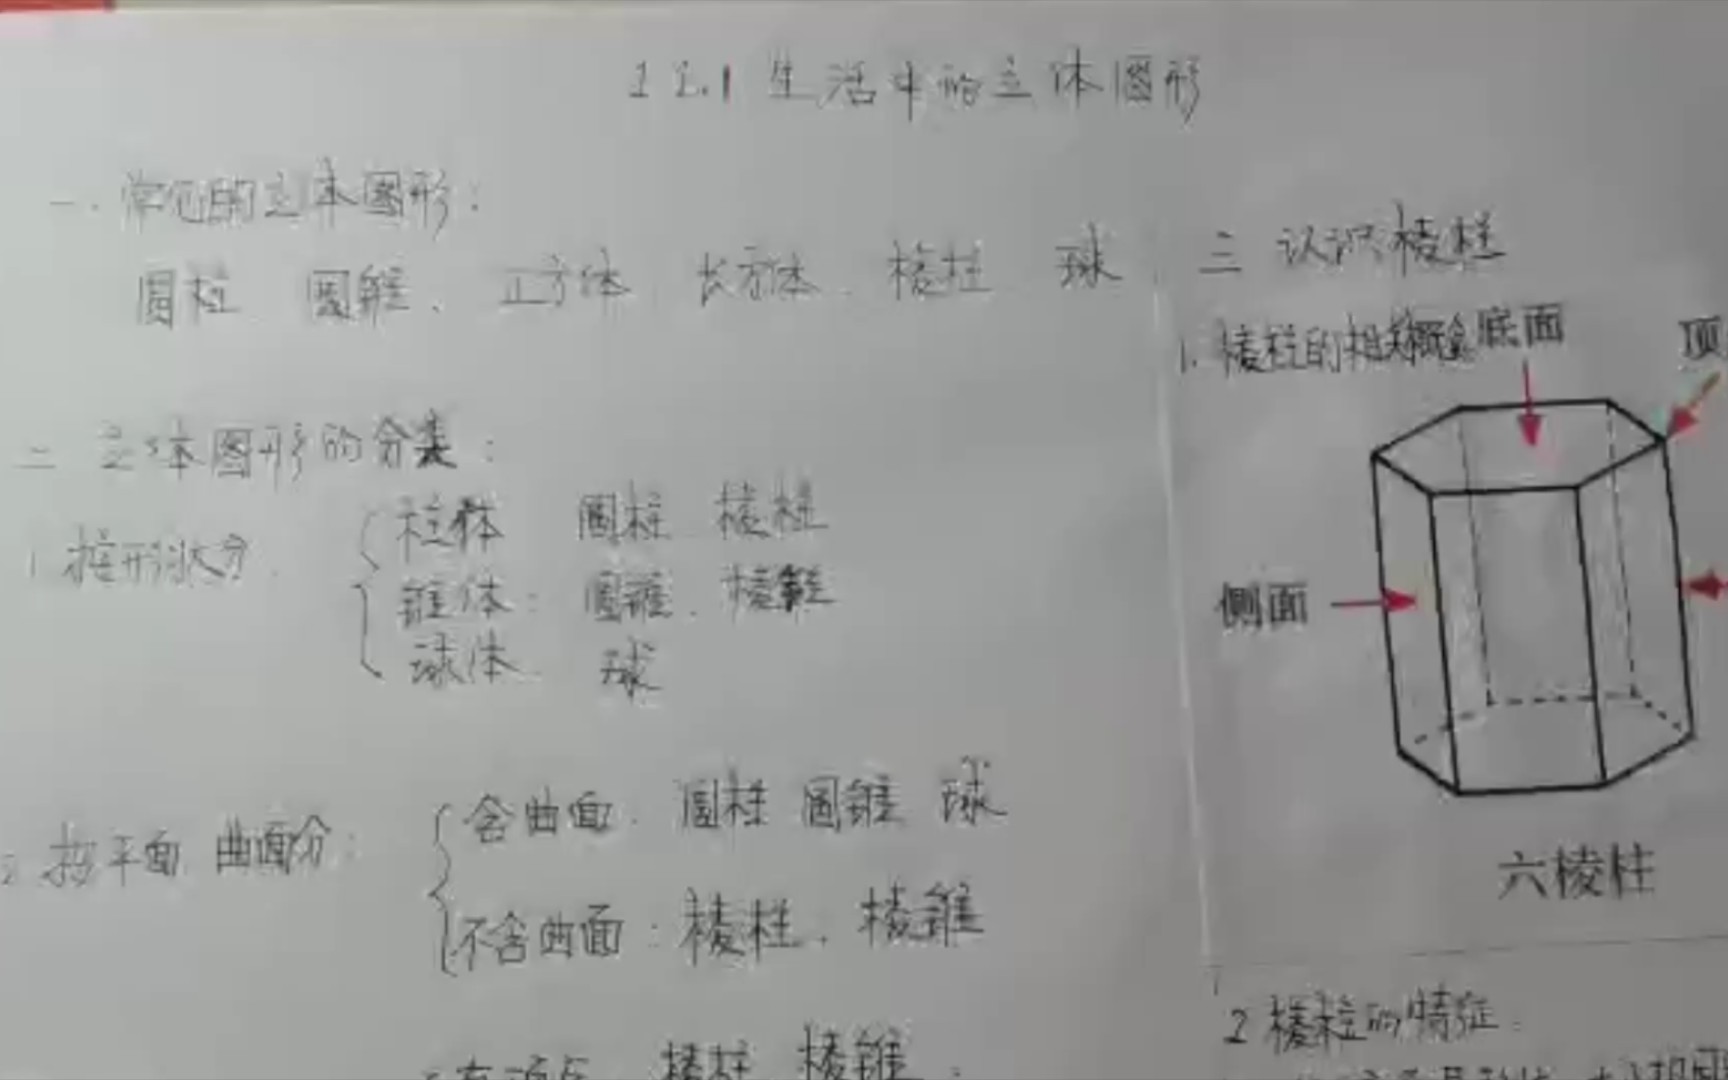 1.1 生活中的立体图形
一、常见的立体图形：
圆柱 圆锥、正方体 长方体、棱柱 球
二 立体图形的分类：
1.按形状分
柱体 圆柱 棱柱
锥体：圆锥、棱锥
球体 球
2 按平面 曲面分：
含曲面、圆柱 圆锥 球
不含曲面：棱柱、棱锥
棱柱 棱锥
三 认识棱柱
1.棱柱的相关概念
底面
顶
侧面
六棱柱
2 棱柱的特征